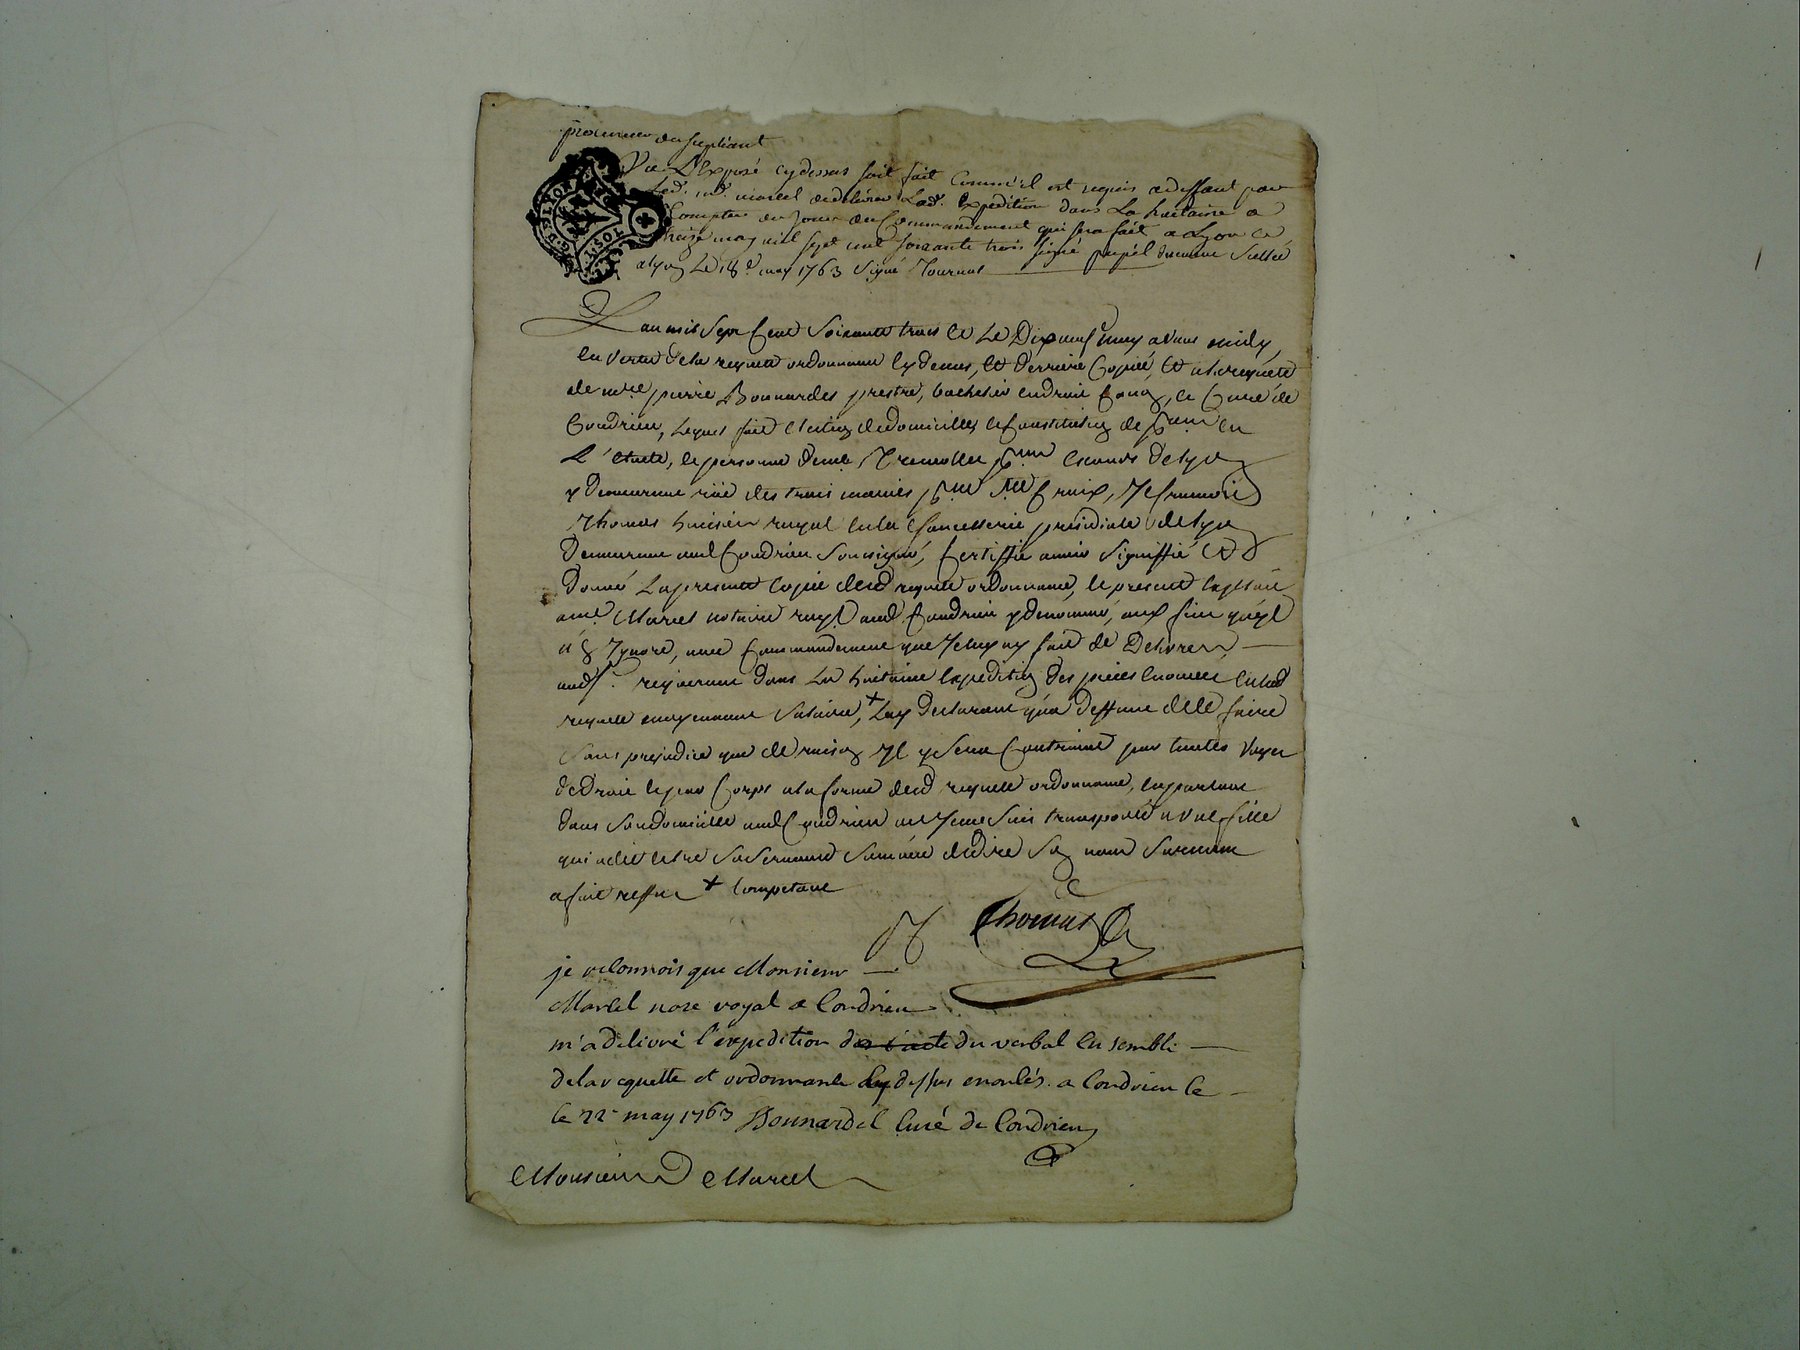 procureur du supliant
Vu L'Exposé cydessus soit fait Comm'il est requis a deffaut par
Led. me. marcel de delivrer Lad. Expedition dans La huitaine a
Compter du Jour du Commandement qui sera fait a Lyon ce
treize may mil sept cent soixante trois signé pupil Scellé
a Lyon Le 18e. may 1763 Signé Tournus
L'an mil Sept Cent Soixante trois Et Le Dix neuf may avant midy,
En Vertu de la requete ordonnance Cydessus, Et Derriere Copiée, Et a la requete
de mre. pierre Bonnardel prestre, bachelier en droit Canon, et Curé de
Condrieu, Lequel fait Election de domicille, et Constitution de pcur. en
L'Etude, et personne de me. pcur. Es cours de Lyon
y demeurant rüe des trois maries Je francois
Thomas huissier royal en la Chancellerie presidiale de Lyon
Demeurant aud. Condrieu Soussigné, Certiffie avoir Signiffié Et
Donné La presente Copie desd. requete ordonnance, et present Exploit
a me. Marcel notaire royal aud. Condrieu y denommé, aux fins qu'il
n'en Ignore, avec Commandement que Je luy ay fait de Delivrer
aud. Sr. requerant dans La huitaine Expedition des pieces Enoncées En lad.
requete moyennant Salaire, + Luy declarant qu'a Deffaut de Ce faire
Sans prejudice que de raison Il y Sera Contraint par toutes Voyes
de droit et par Corps a la forme desd. requete ordonnance, En parlant
dans Son domicille aud. Condrieu ou Je me Suis transporté a Une fille
qui a dit Etre Sa Servante Sommée de dire Son nom Surnom
a fait reffus + Competant
Thomas
je reconnois que Monsieur
Marcel nore royal a Condrieu
m'a delivré l'expedition de l'acte du verbal Ensemble
de la requette et ordonnance Cy dessus enoncés. a Condrieu Ce
le 22e may 1763 Bonnardel Curé de Condrieu
Monsieur Marcel